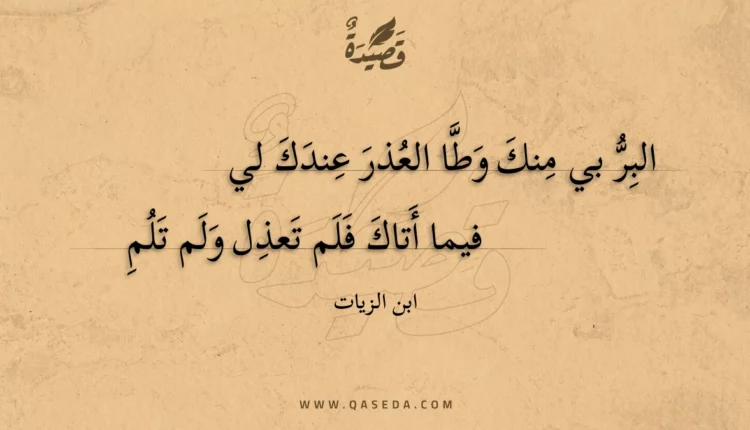 قَصِيْدَةٌ
البِرُّ بي مِنكَ وَطَّا العُذرَ عِندَكَ لي
فيما أَتاكَ فَلَم تَعذِل وَلَم تَلُمِ
ابن الزيات
WWW.QASEDA.COM